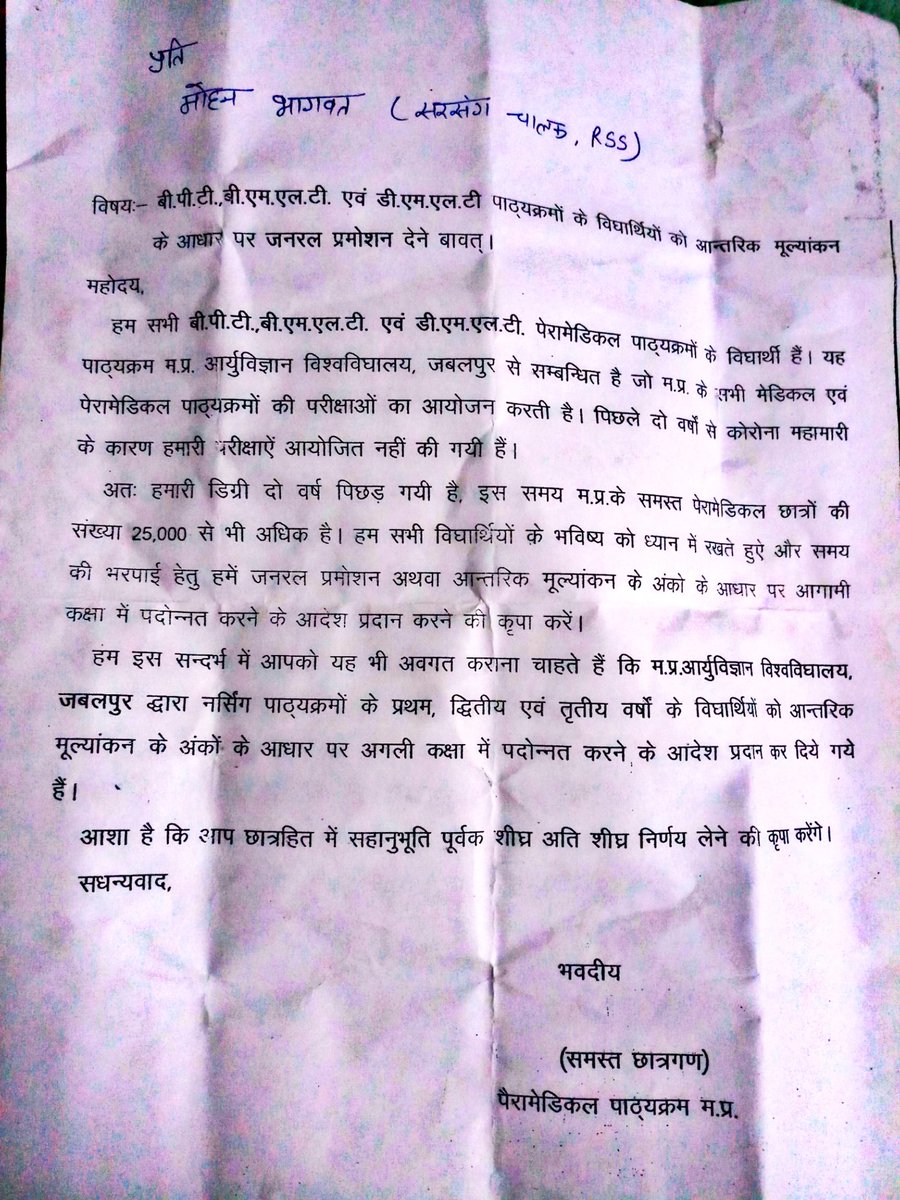 प्रति
मोहन भागवत ( सरसंग चालक, RSS)
विषयः– बी.पी.टी.,बी.एम.एल.टी. एवं डी.एम.एल.टी पाठ्यक्रमों के विघार्थियों को आन्तरिक मूल्यांकन
के आधार पर जनरल प्रमोशन देने बावत्।
महोदय,
हम सभी बी.पी.टी.,बी.एम.एल.टी. एवं डी.एम.एल.टी. पेरामेडिकल पाठ्यक्रमों के विघार्थी हैं। यह
पाठ्यक्रम म.प्र. आर्युविज्ञान विश्वविघालय, जबलपुर से सम्बन्धित है जो म.प्र. के सभी मेडिकल एवं
पेरामेडिकल पाठ्यक्रमों की परीक्षाओं का आयोजन करती है। पिछले दो वर्षों से कोरोना महामारी
के कारण हमारी परीक्षाऐं आयोजित नहीं की गयी हैं।
अतः हमारी डिग्री दो वर्ष पिछड़ गयी है, इस समय म.प्र.के समस्त पेरामेडिकल छात्रों की
संख्या 25,000 से भी अधिक है। हम सभी विघार्थियों के भविष्य को ध्यान में रखते हुऐ और समय
की भरपाई हेतु हमें जनरल प्रमोशन अथवा आन्तरिक मूल्यांकन के अंको के आधार पर आगामी
कक्षा में पदोन्नत करने के आदेश प्रदान करने की कृपा करें।
हम इस सन्दर्भ में आपको यह भी अवगत कराना चाहते हैं कि म.प्र.आर्युविज्ञान विश्वविघालय,
जबलपुर द्धारा नर्सिंग पाठ्यक्रमों के प्रथम, द्धितीय एवं तृतीय वर्षों के विघार्थियों को आन्तरिक
मूल्यांकन के अंकों के आधार पर अगली कक्षा में पदोन्नत करने के आंदेश प्रदान कर दिये गये
हैं।
आशा है कि आप छात्रहित में सहानुभूति पूर्वक शीघ्र अति शीघ्र निर्णय लेने की कृपा करेंगे।
सधन्यवाद,
भवदीय
(समस्त छात्रगण)
पैरामेडिकल पाठ्यक्रम म.प्र.